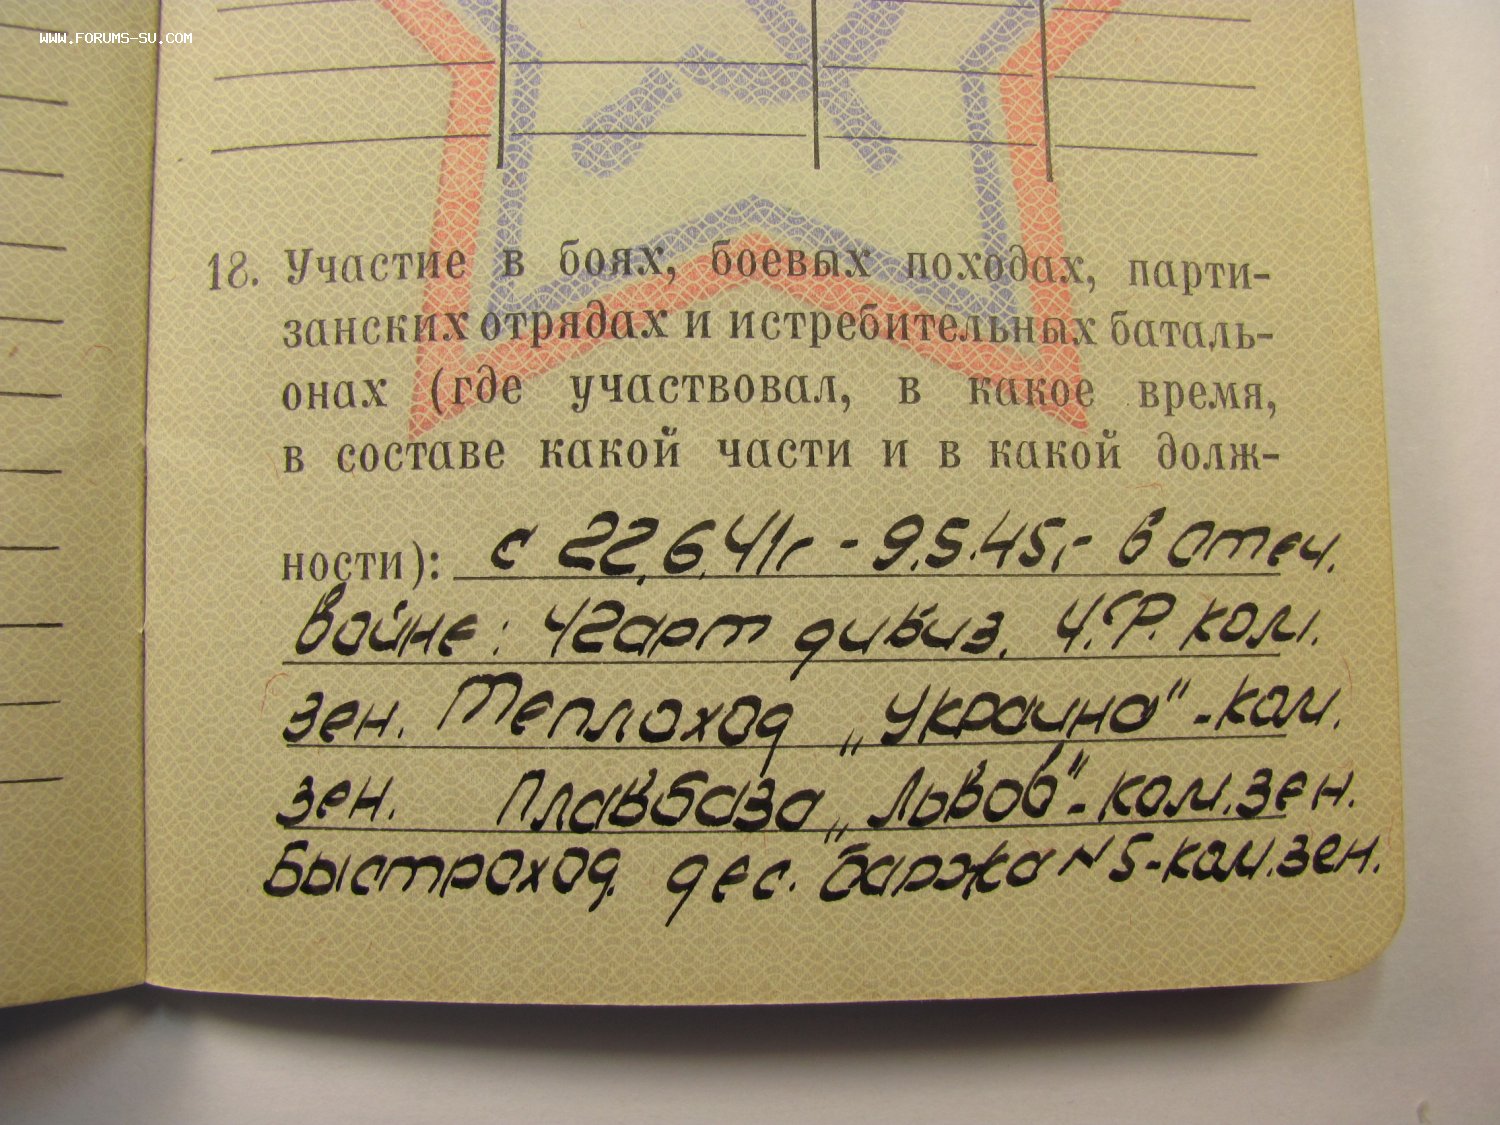 WWW.FORUMS-SU.COM
18. Участие в боях, боевых походах, парти-
занских отрядах и истребительных баталь-
онах (где участвовал, в какое время,
в составе какой части и в какой долж-
ности): с 22.6.41г - 9.5.45г в Отеч.
войне: 42арт дивиз. ком.
зен. Теплоход „Украина" - ком.
зен. Плавбаза „Львов" - ком.зен.
Быстроход. дес. баржа N 5 - ком.зен.